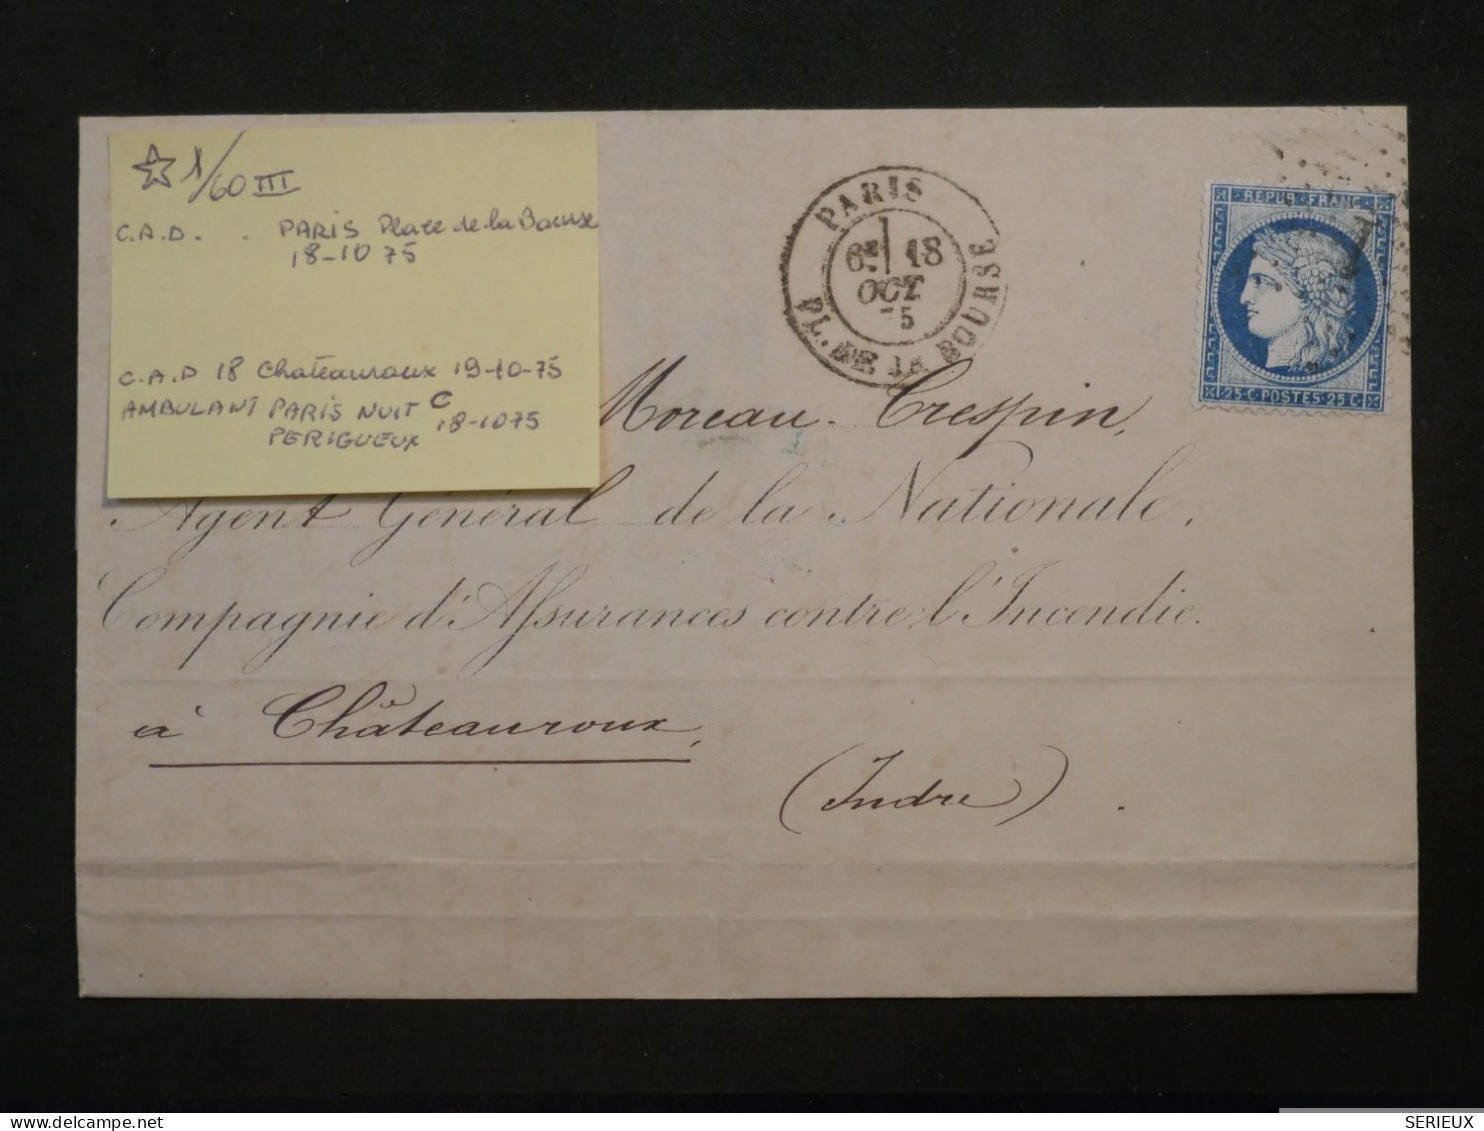 1/60 III
C.A.D. . PARIS Place de la Bourse
18-10 75
C.A.D 18 Chateauroux 19-10-75
AMBULANT PARIS NUIT C
PERIGUEUX 18-1075
PARIS
6E 18
OCT
75
PL. DE LA BOURSE
REPUB·FRANC·
1
25·C·POSTES·25·C
Moreau-Crespin,
Agent Général de la Nationale,
Compagnie d'Assurances contre l'Incendie.
à Châteauroux,
(Indre) .
SERIEUX